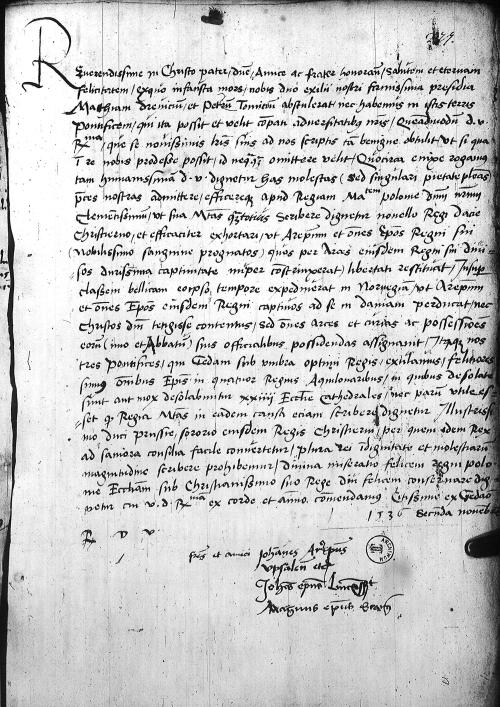 Reverendissime in Christo pater, dne, Amice ac frater honoran, Salutem et eternam
felicitatem, exquo infausta mors, nobis duo exilii nostri firmissima presidia
Mathiam Drevicium, et Petrum Tomicium abstulerat, nec habemus in istis terris
Pontificem, qui ita possit et velit compati adversitatibus nris, Queadmodum d. v.
Rma, que se novissimis tris suis ad nos scriptis tam benigne obtulit, ut si qua
re nobis prodesse possit, id neqq omittere velit, Quocirca enixe rogamus
tam humanissimam d. v. dignetur has molestas (sed singulari pietate plenas)
pces nostras admittere, efficereq apud Regiam Matem polonie dnm nrum
Clementissimum, ut sua Mtas scribere dignetur novello Regi dacie
Christierno, et efficaciter exhortari, ut Arepum et omes Epos Regni sui
(Nobilissimo sanguine prognatos) quos per Arces eiusdem Regni sui in
sos durissima captivitate nuper costrinxerat, libertati restituat,
classem bellicam eo ipso tempore expediverat in Norvegia, ut Arepum
et omes Epos eiusdem Regni captivos ad se in daniam perducat, nec
Christos dm tetigisse contentus, sed omes Arces et curias ac possessiões
eorum (imo et Abbatum) suis officialibus possidendas assignavit, Itaq nos
tres Pontifices, qui Gedani sub umbra optimi Regis, exulamus,
simus omibus Epis in quatuor Regnis Aquilonaribus, in quibus desolate
sunt aut mox desolabuntur xxiiii Ecclie cathedrales, nec parum utile es-
set q Regia Mtas in eadem causa eciam scribere dignetur, Illustrissi-
mo duci prussie, sororio eiusdem Regis Christierni, per quem idem Rex
ad saniora consilia facile convertetur, plura rei idignitate et molestiarum
magnitudine scribere prohibemur, divina miseratio felicem regni polo-
nie Eccliam sub Christianissimo suo Rege diu felicem conservare dig-
netur cui v. d. Rmam ex corde et animo comendamus Citissime ex Gedano
1536 Secunda novebris
R D V
fres et amici Johanes Arepus
Upsalen etc
Johes epus Lincopen
Magnus epus Scaren